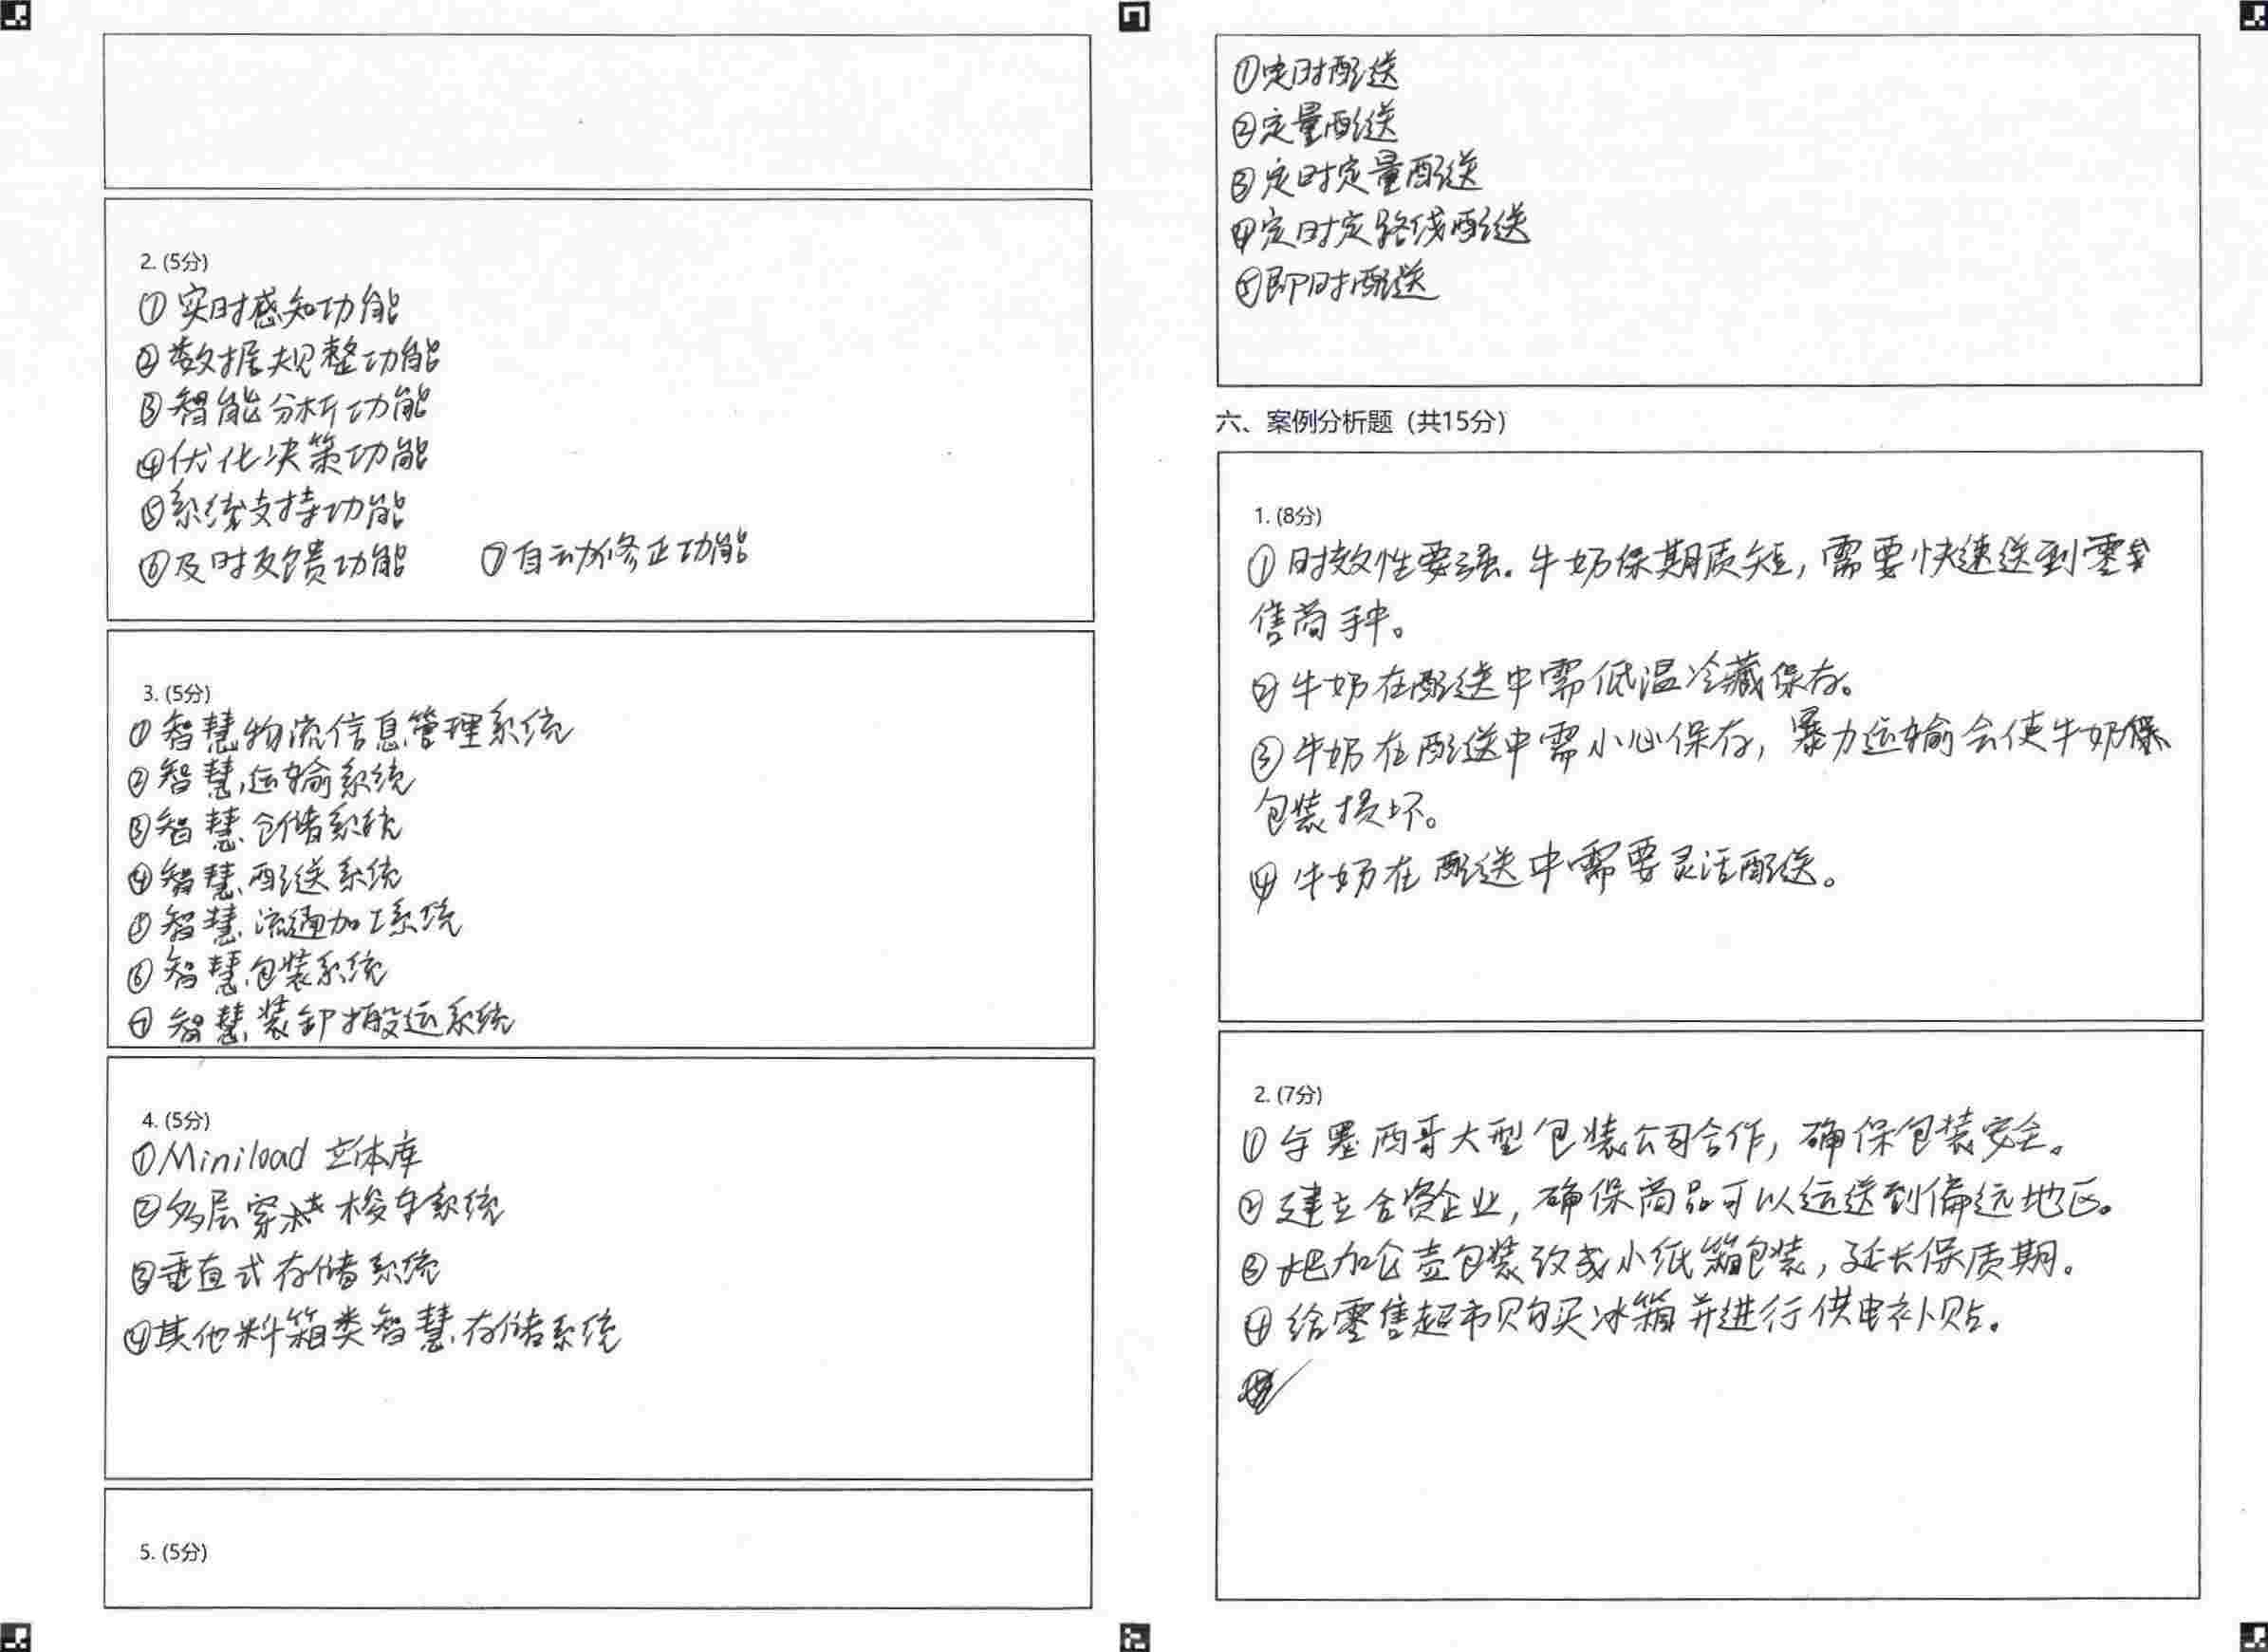 2. (5分)
① 实时感知功能
② 数据规整功能
③ 智能分析功能
④ 优化决策功能
⑤ 系统支持功能
⑥ 及时反馈功能 ⑦ 自动修正功能
3. (5分)
① 智慧物流信息管理系统
② 智慧运输系统
③ 智慧仓储系统
④ 智慧配送系统
⑤ 智慧流通加工系统
⑥ 智慧包装系统
⑦ 智慧装卸搬运系统
4. (5分)
① Miniload 立体库
② 多层穿梭车系统
③ 垂直式存储系统
④ 其他料箱类智慧存储系统
5. (5分)
① 定时配送
② 定量配送
③ 定时定量配送
④ 定时定路线配送
⑤ 即时配送
六、案例分析题（共15分）
1. (8分)
① 时效性要强. 牛奶保期质短, 需要快速送到零
售商手中。
② 牛奶在配送中需低温冷藏保存。
③ 牛奶在配送中需小心保存, 暴力运输会使牛奶
包装损坏。
④ 牛奶在配送中需要灵活配送。
2. (7分)
① 与墨西哥大型包装公司合作, 确保包装安全。
② 建立合资企业, 确保商品可以运送到偏远地区。
③ 把加仑壶包装改成小纸箱包装, 延长保质期。
④ 给零售超市购买冰箱并进行供电补贴。